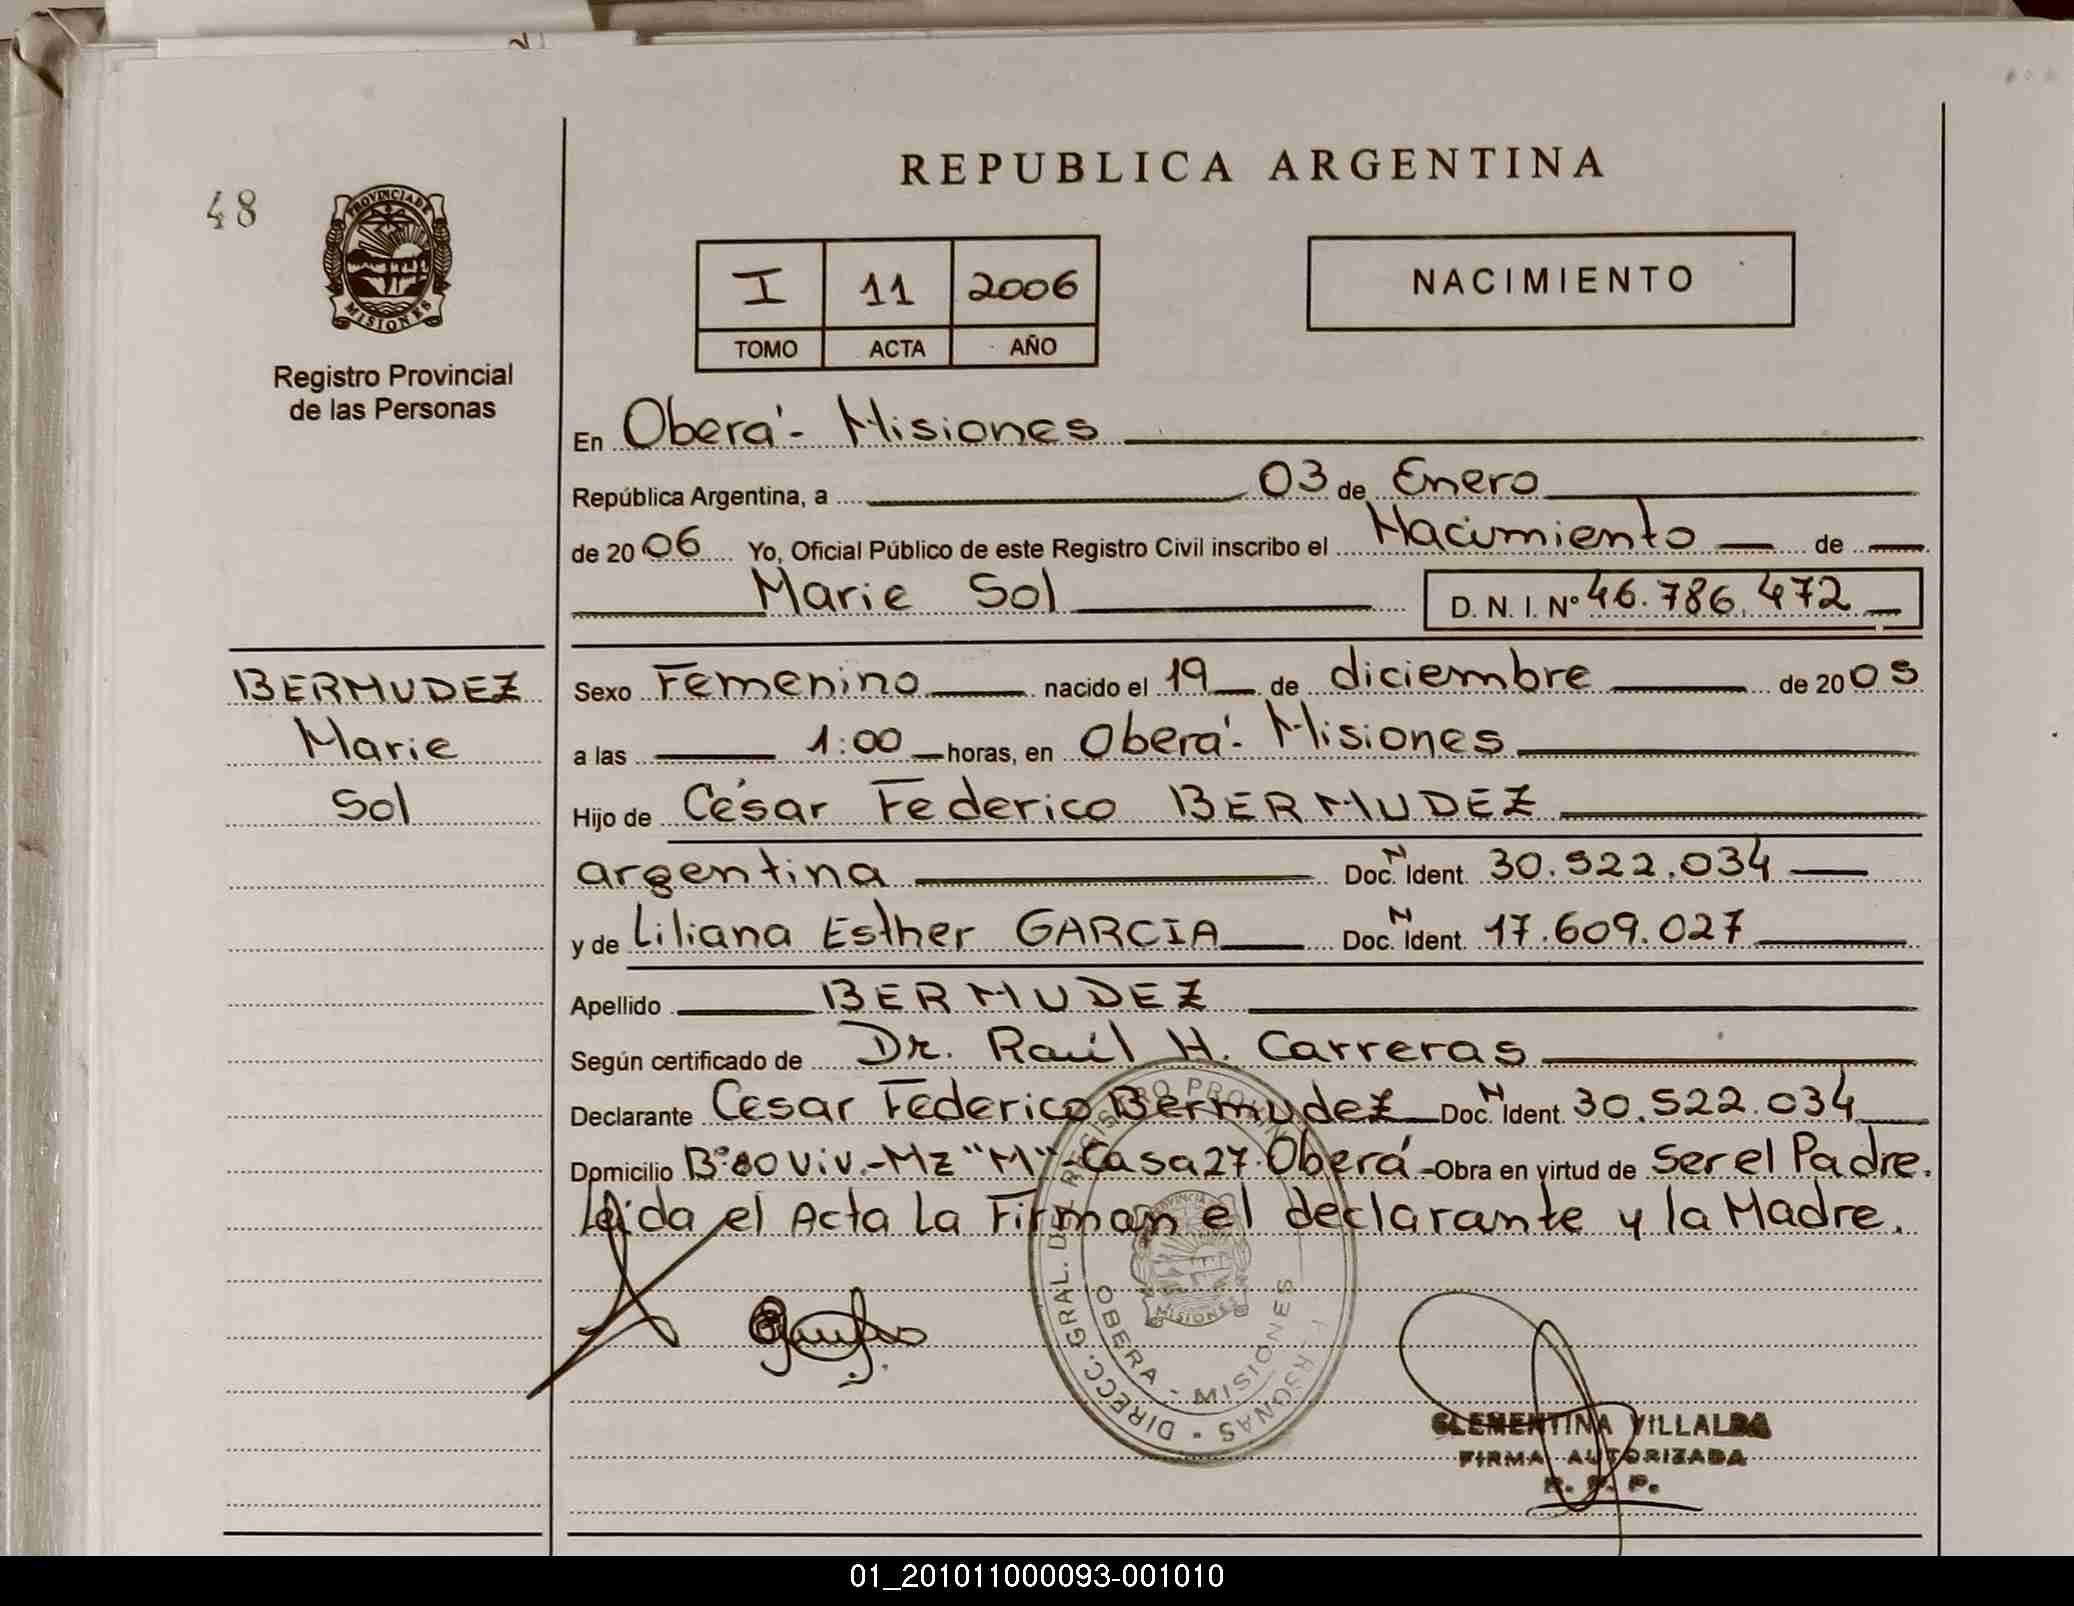 REPUBLICA ARGENTINA
48
PROVINCIA DE
MISIONES
Registro Provincial
de las Personas
I 11 2006
TOMO ACTA AÑO
NACIMIENTO
En Oberá - Misiones
República Argentina, a 03 de Enero
de 2006 Yo, Oficial Público de este Registro Civil inscribo el Nacimiento de
Marie Sol D. N. I. Nº 46.786.472
BERMUDEZ
Marie
Sol
Sexo Femenino nacido el 19 de diciembre de 2005
a las 1:00 horas, en Oberá - Misiones
Hijo de César Federico BERMUDEZ
argentina Doc. N Ident. 30.522.034
y de Liliana Esther GARCIA Doc. N Ident. 17.609.027
Apellido BERMUDEZ
Según certificado de Dr. Raúl H. Carreras
Declarante Cesar Federico Bermudez Doc. N Ident. 30.522.034
Domicilio Bº 80 Viv.-Mz "M"-Casa 27-Oberá - Obra en virtud de Ser el Padre.
Leida el Acta La Firman el declarante y la Madre.
DIRECC. GRAL. DEL REGISTRO PROVINCIAL PERSONAS
OBERA - MISIONES
MISIONES
CLEMENTINA VILLALBA
FIRMA AUTORIZADA
R. P. P.
01_201011000093-001010